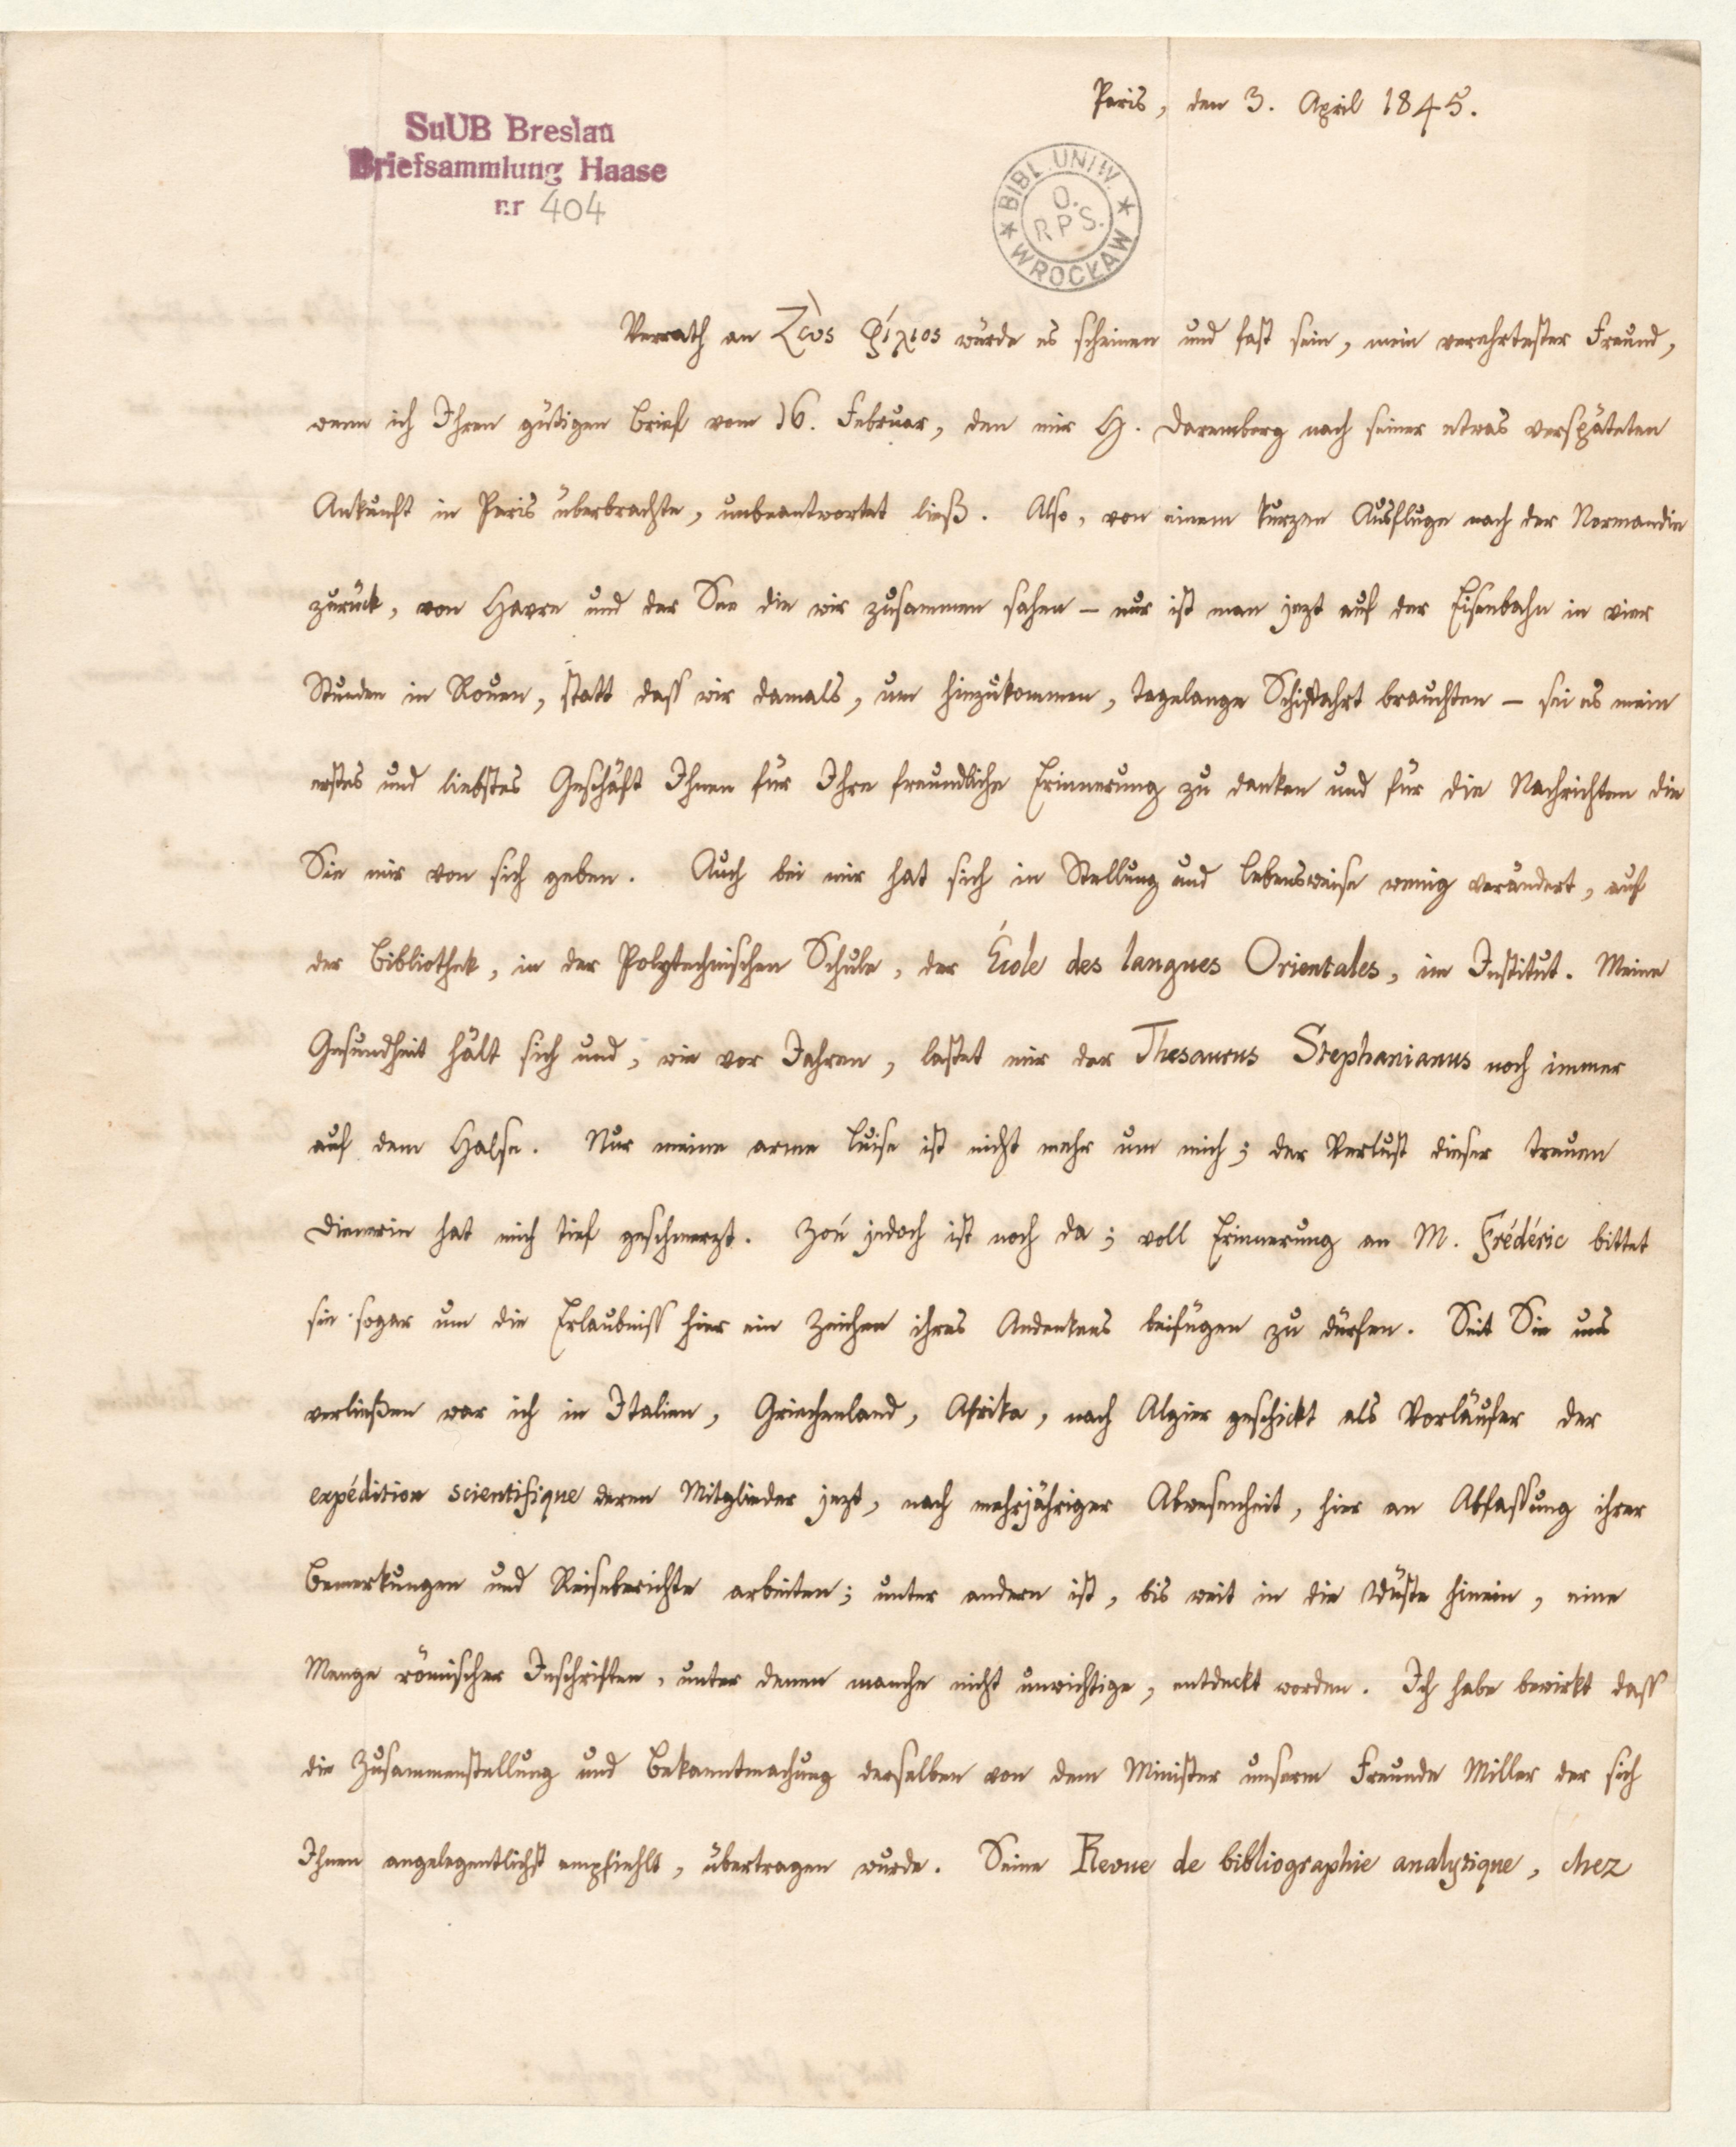 Paris, den 3. April 1845.
SuUB Breslau
Briefsammlung Haase
nr 404
BIBL. UNIW. WROCŁAW
O.
RPS.
Verrath an Ζεὺς φίλιος würde es scheinen und fast sein, mein verehrtester Freund,
wenn ich Ihren gütigen Brief vom 16. Februar, den mir H. Daremberg nach seiner etwas verspäteten
Ankunft in Paris überbrachte, unbeantwortet ließ. Also, von einem kurzen Ausfluge nach der Normandie
zurück, von Havre und der See die wir zusammen sahen – nur ist man jezt auf der Eisenbahn in vier
Stunden in Rouen, statt dass wir damals, um hinzukommen, tagelange Schiffahrt brauchten – sei es mein
erstes und liebstes Geschäft Ihnen für Ihre freundliche Erinnerung zu danken und für die Nachrichten die
Sie mir von sich geben. Auch bei mir hat sich in Stellung und Lebensweise wenig verändert, auf
der Bibliothek, in der Polytechnischen Schule, der École des langues Orientales, im Institut. Meine
Gesundheit hält sich und, wie vor Jahren, lastet mir der Thesaurus Stephanianus noch immer
auf dem Halse. Nur meine arme Luise ist nicht mehr um mich; der Verlust dieser treuen
Dienerin hat mich tief geschmerzt. Zoé jedoch ist noch da; voll Erinnerung an M. Frédéric bittet
sie sogar um die Erlaubniss hier ein Zeichen ihres Andenkens beifügen zu dürfen. Seit Sie uns
verließen war ich in Italien, Griechenland, Afrika, nach Algier geschickt als Vorläufer der
expédition scientifique deren Mitglieder jezt, nach mehrjähriger Abwesenheit, hier an Abfassung ihrer
Bemerkungen und Reiseberichte arbeiten; unter andern ist, bis weit in die Wüste hinein, eine
Menge römischer Inschriften, unter denen manche nicht unwichtige, entdeckt worden. Ich habe bewirkt dass
die Zusammenstellung und Bekanntmachung derselben von dem Minister unserm Freunde Miller der sich
Ihnen angelegentlichst empfiehlt, übertragen wurde. Seine Revue de bibliographie analytique, chez